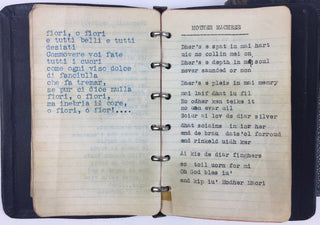 fiori, o fiori
e tutti belli e tutti
desiati
Commovere voi fate
tutti i cuori
come ogni viso dolce
di fanciulla
che fa tremar,
se pur ci dice nulla
fiori, o fiori,
ma inebria il core,
o fiori, o fior!....
MOUDER MACHREE
Dher's e spat in mai hart
uic no collin mai on
Dher's e depth in mai soul
never saunded or non
Dher's e pleis in mai memry
mai laif dhat iu fil
No odher kan teiks it
no uan ever uil
Soiur ai lov de diar silver
dhat scioins in ior her
end de brau dats'ol forroud
end rinkeld uidh kar
Ai kis de diar finghers
so toil uorn for mi
Oh God bles iu'
and kip iu' Modher Mhori